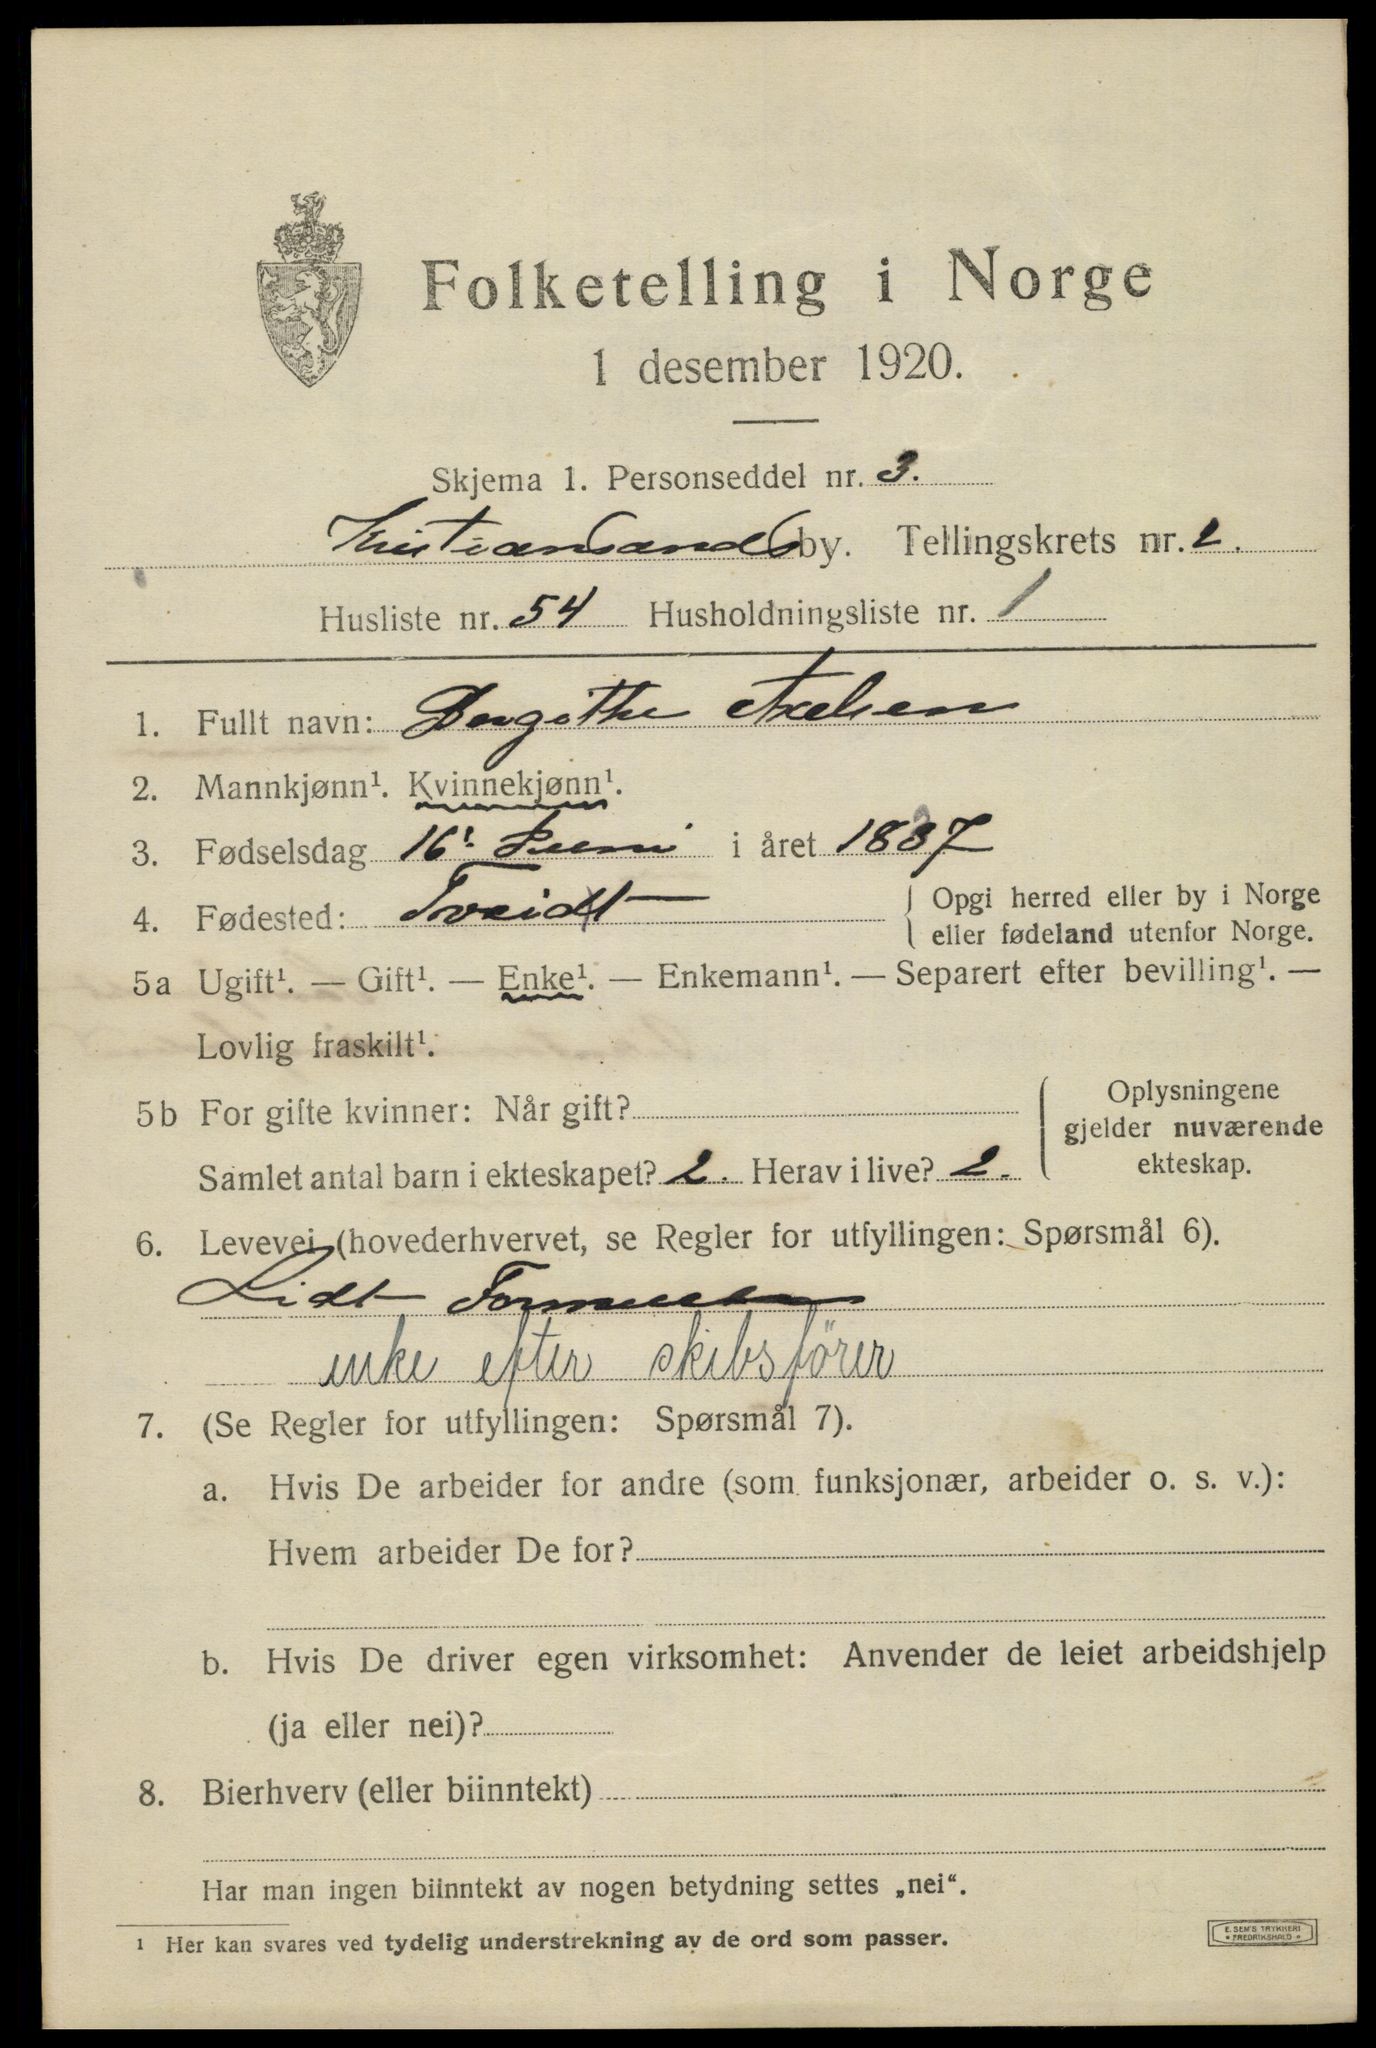 Folketelling i Norge
1 desember 1920.
Skjema 1. Personseddel nr. 3.
Kristiansands by. Tellingskrets nr. 2.
Husliste nr. 54 Husholdningsliste nr. 1
1. Fullt navn: Birgithe Axelsen
2. Mannkjønn¹. Kvinnekjønn¹.
3. Fødselsdag 16. Juni i året 1837
4. Fødested: Tveidt { Opgi herred eller by i Norge
eller fødeland utenfor Norge.
5a Ugift¹. — Gift¹. — Enke¹. — Enkemann¹. — Separert efter bevilling¹. —
Lovlig fraskilt¹.
5b For gifte kvinner: Når gift? { Oplysningene
gjelder nuværende
Samlet antal barn i ekteskapet? 2. Herav i live? 2. ekteskap.
6. Levevei (hovederhvervet, se Regler for utfyllingen: Spørsmål 6).
Lidt Formue
enke efter skibsfører
7. (Se Regler for utfyllingen: Spørsmål 7).
a. Hvis De arbeider for andre (som funksjonær, arbeider o. s. v.):
Hvem arbeider De for?
b. Hvis De driver egen virksomhet: Anvender de leiet arbeidshjelp
(ja eller nei)?
8. Bierhverv (eller biinntekt)
Har man ingen biinntekt av nogen betydning settes „nei“.
¹ Her kan svares ved tydelig understrekning av de ord som passer.
E. SEM'S TRYKKERI
• FREDRIKSHALD •